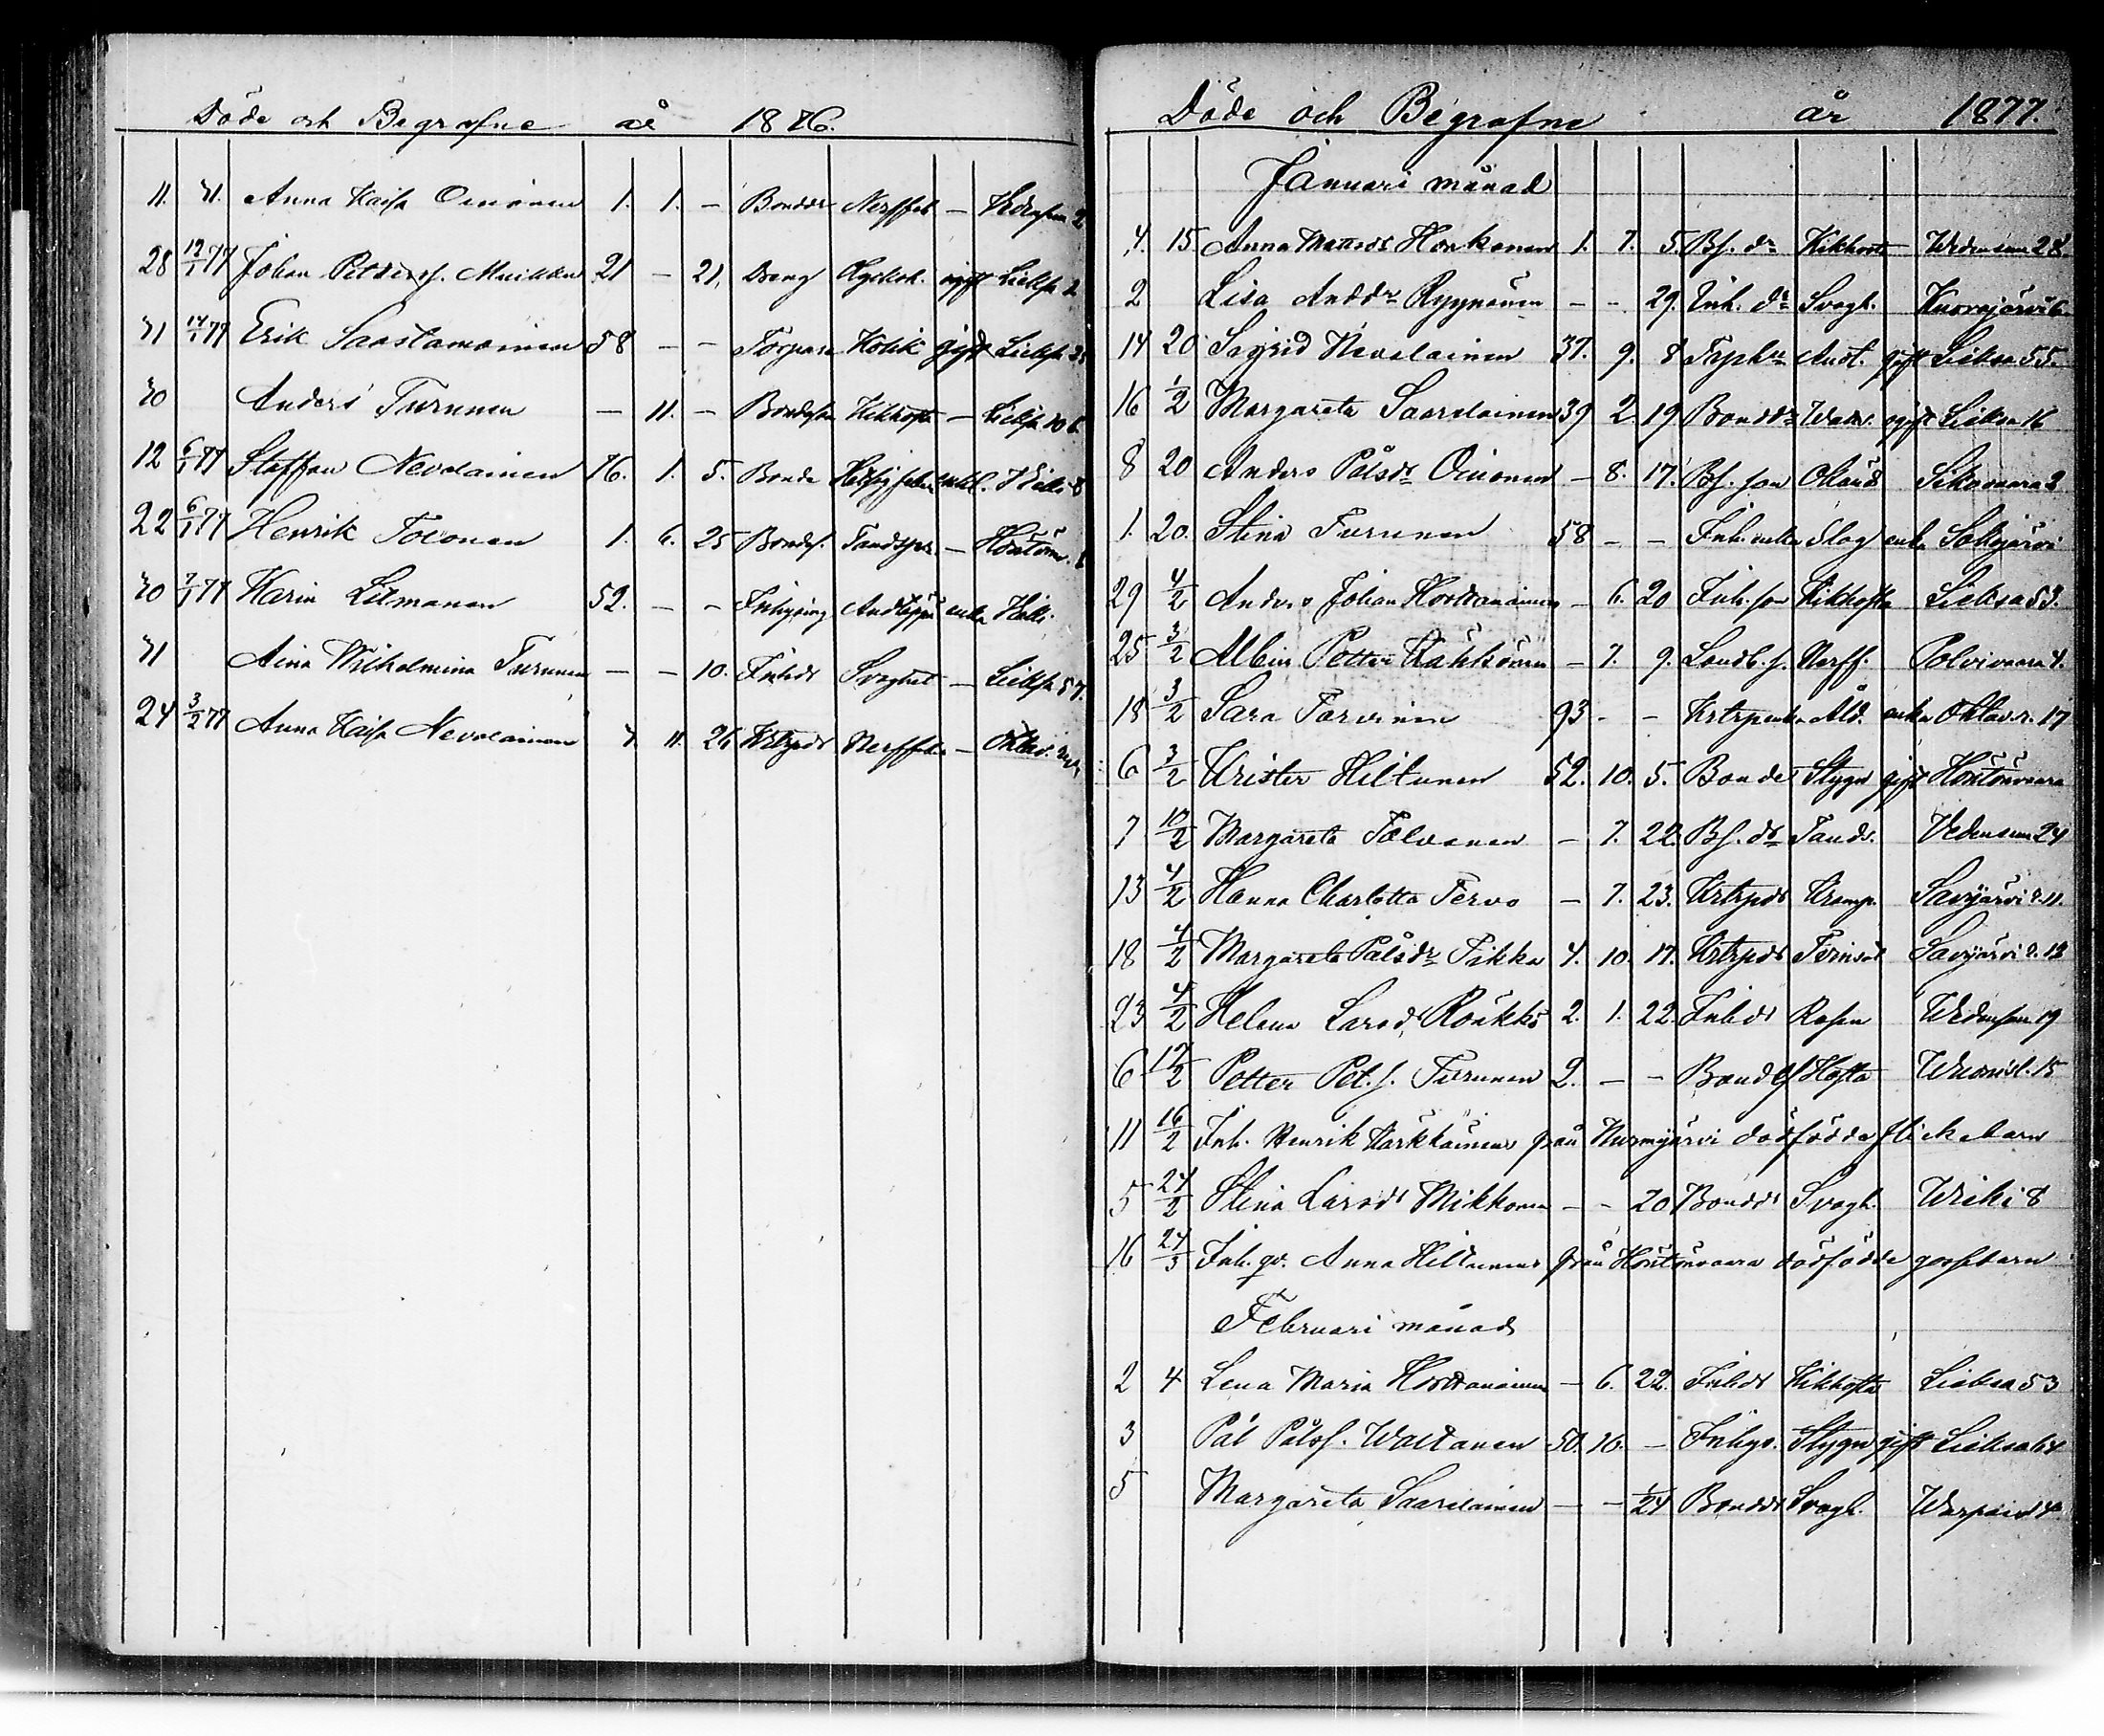 Döde och Begrafne år 1876.
11. 31. Anna Kaisa Oinonen 1. 1. — Bonddr Nerffeb —
28 12/1 77 Johan Pettersf. Muikku 21 — 21, Dreng ogift Lieksa 2
31 14/1 77 Erik Saastamoinen 58 — — Torpare Kolik gift Lieksa
30 Anders Turunen — 11. — Bondeson Kikhosta — Lieksa 106
12 6/1 77 Staffan Nevalainen 76. 1. 5. Bonde
22 6/1 77 Henrik Tolvonen 1. 6. 25 Bondes. Tandspr. — Höntönv.
30 7/1 77 Karin Litmanen 52. — — Inhysing Andtäppa enka
31 Aina Wilhelmina Turunen — — 10. Inhdr Svaghet — Lieksa 57.
24 3/2 77 Anna Kaisa Nevalainen 7. 11. 26 Krtrpdr Nerffeb. —
Döde och Begrafne år 1877.
Januari månad
4. 15. Anna Mattsdr Honkanen 1. 7. 5. Bf. dr Kikhosta Wedensuu 28.
2 Lisa Anddr Ryynänen — — 29. Inh. dr Svagh. Kuorajärvi 6.
14 20 Sigrid Nevalainen 37. 9. 8 Andt. gift Lieksa 55.
16 1/2 Margareta Saarelainen 39 2. 19 Bonddr Watts. ogift Lieksa 16
8 20 Anders Pålsdr Oinonen — 8. 17. Bf. son Okänd Sikovaara 3
1. 20. Stina Turunen 58 — — Inh. enka Slag enka Sokojärvi
29 4/2 Anders Johan Horttanainen — 6. 20 Inh. son Kikhosta Lieksa 53.
25 3/2 Albin Petter Kähkönen — 7. 9. Landb. s. Nerff. Polvivaara 4.
18 3/2 Sara Tarvinen 93 — — Krtrpenka Åld. enka 17
6 3/2 Krister Hiltunen 52. 10. 5. Bonde Stygn gift Höntönvaara
7 10/2 Margareta Tolvanen — 7. 22. Bf. dr Tands. Vedensuu 24
13 4/2 Hanna Charlotta Tervo — 7. 23. Krtrpdr Kramp. Savijärvi r. 11.
18 4/2 Margareta Pålsdr Pikka 4. 10. 17. Krtrpdr Savijärvi r. 13
23 4/2 Helena Larsdr Rönkkö 2. 1. 22. Inhdr Rosen Wedensuu 19
6 17/2 Petter Pet. s. Turunen 2. — — Bondes Hosta 15
11 16/2 Inh. Henrik Kärkkäinens från Nurmijärvi dödfödde flickebarn
5 24/2 Stina Larsdr Mikkonen — — 20 Bonddr Svagh. Wieki 8
16 24/3 Inh. qv. Anna Hiltunens från Höntönvaara dödfödde gossebarn
Februari månad
2 4 Lena Maria Horttanainen — 6. 22. Inhdr Kikhosta Lieksa 53
3 Pål Pålsf. Wattanen 50. 10. — Inhys. Stygn gift Lieksa 64
5 Margareta Saarelainen — — 1/24 Bonddr Svagh.